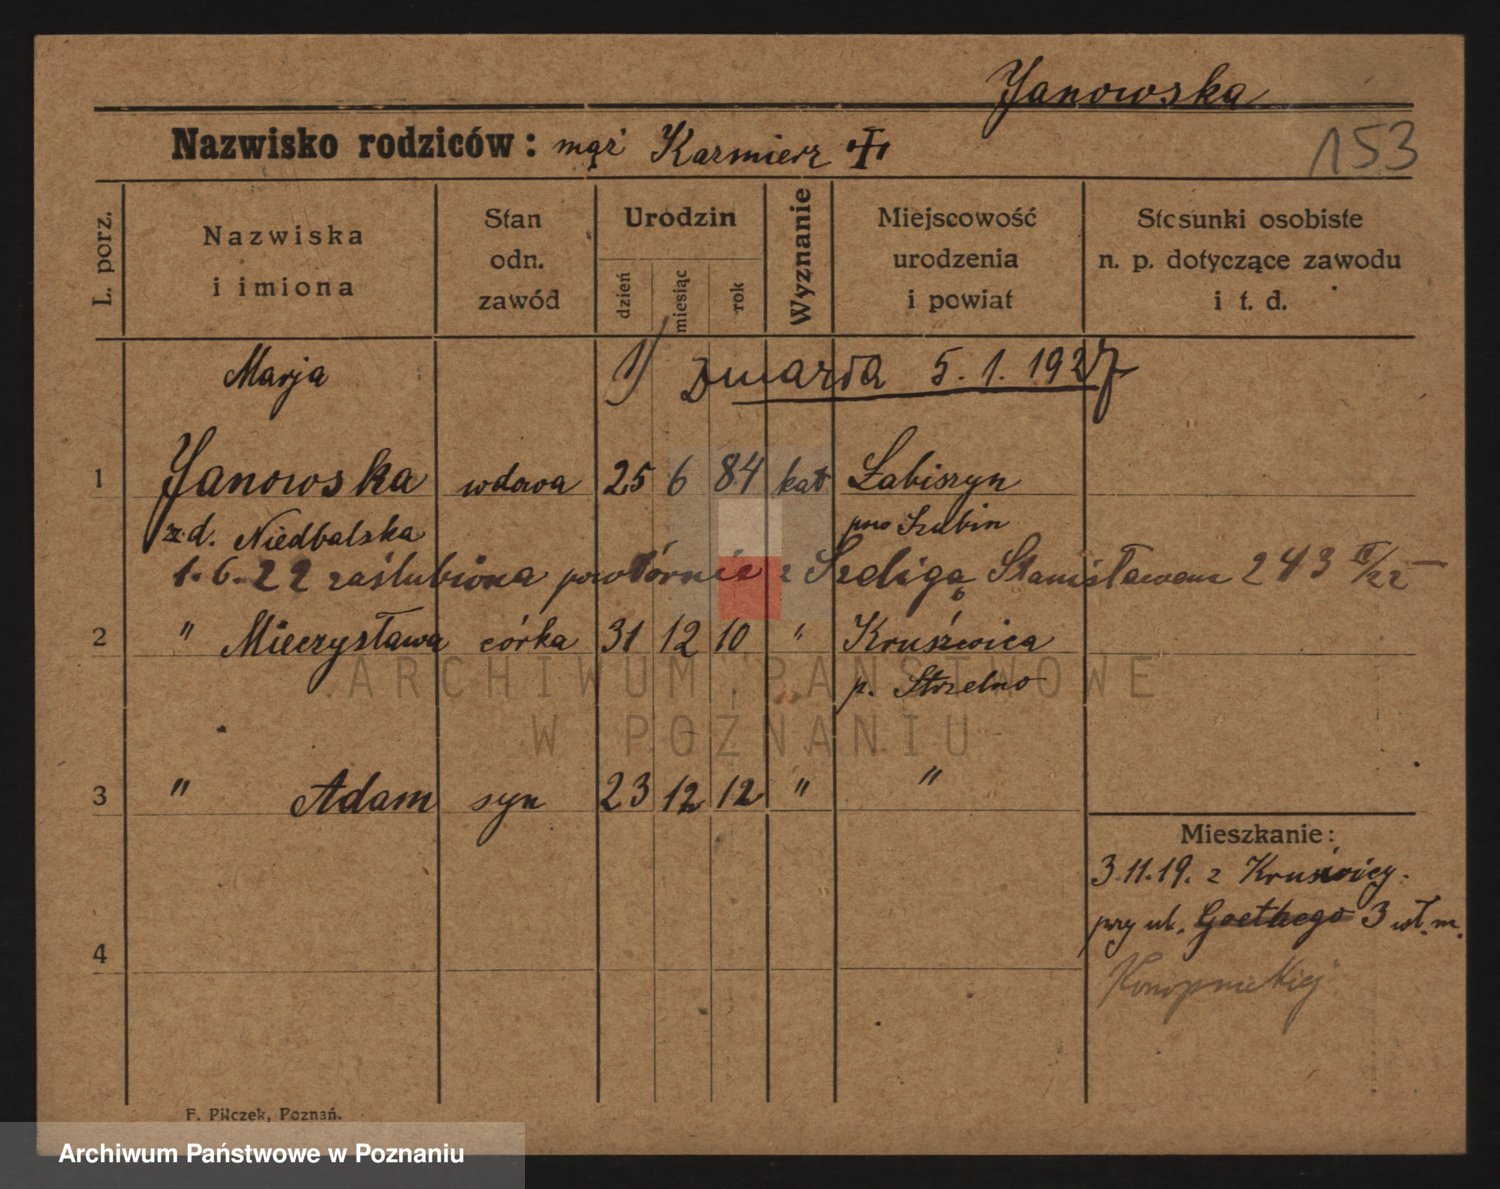 Janowska
Nazwisko rodziców: mąż Kazmierz
153
L. porz.
Nazwiska
i imiona
Stan
odn.
zawód
Urodzin
dzień
miesiąc
rok
Wyznanie
Miejscowość
urodzenia
i powiat
Stosunki osobiste
n. p. dotyczące zawodu
i t. d.
Marja 1) Zmarła 5. 1. 1927
1 Janowska wdowa 25 6 84 kat Łabiszyn
z d. Niedbalska pow Szubin
1. 6. 22 zaślubiona powtórnie z Szeligą Stanisławem 243 II/22
2 " Mieczysława córka 31 12 10 " Kruświca
p. Strzelno
3 " Adam syn 23 12 12 " "
Mieszkanie:
3.11.19. z Kruświcy.
przy ul. Goethego 3 wł. m.
4
Konopnickiej
F. Pilczek, Poznań.
ARCHIWUM PAŃSTWOWE
W POZNANIU
Archiwum Państwowe w Poznaniu